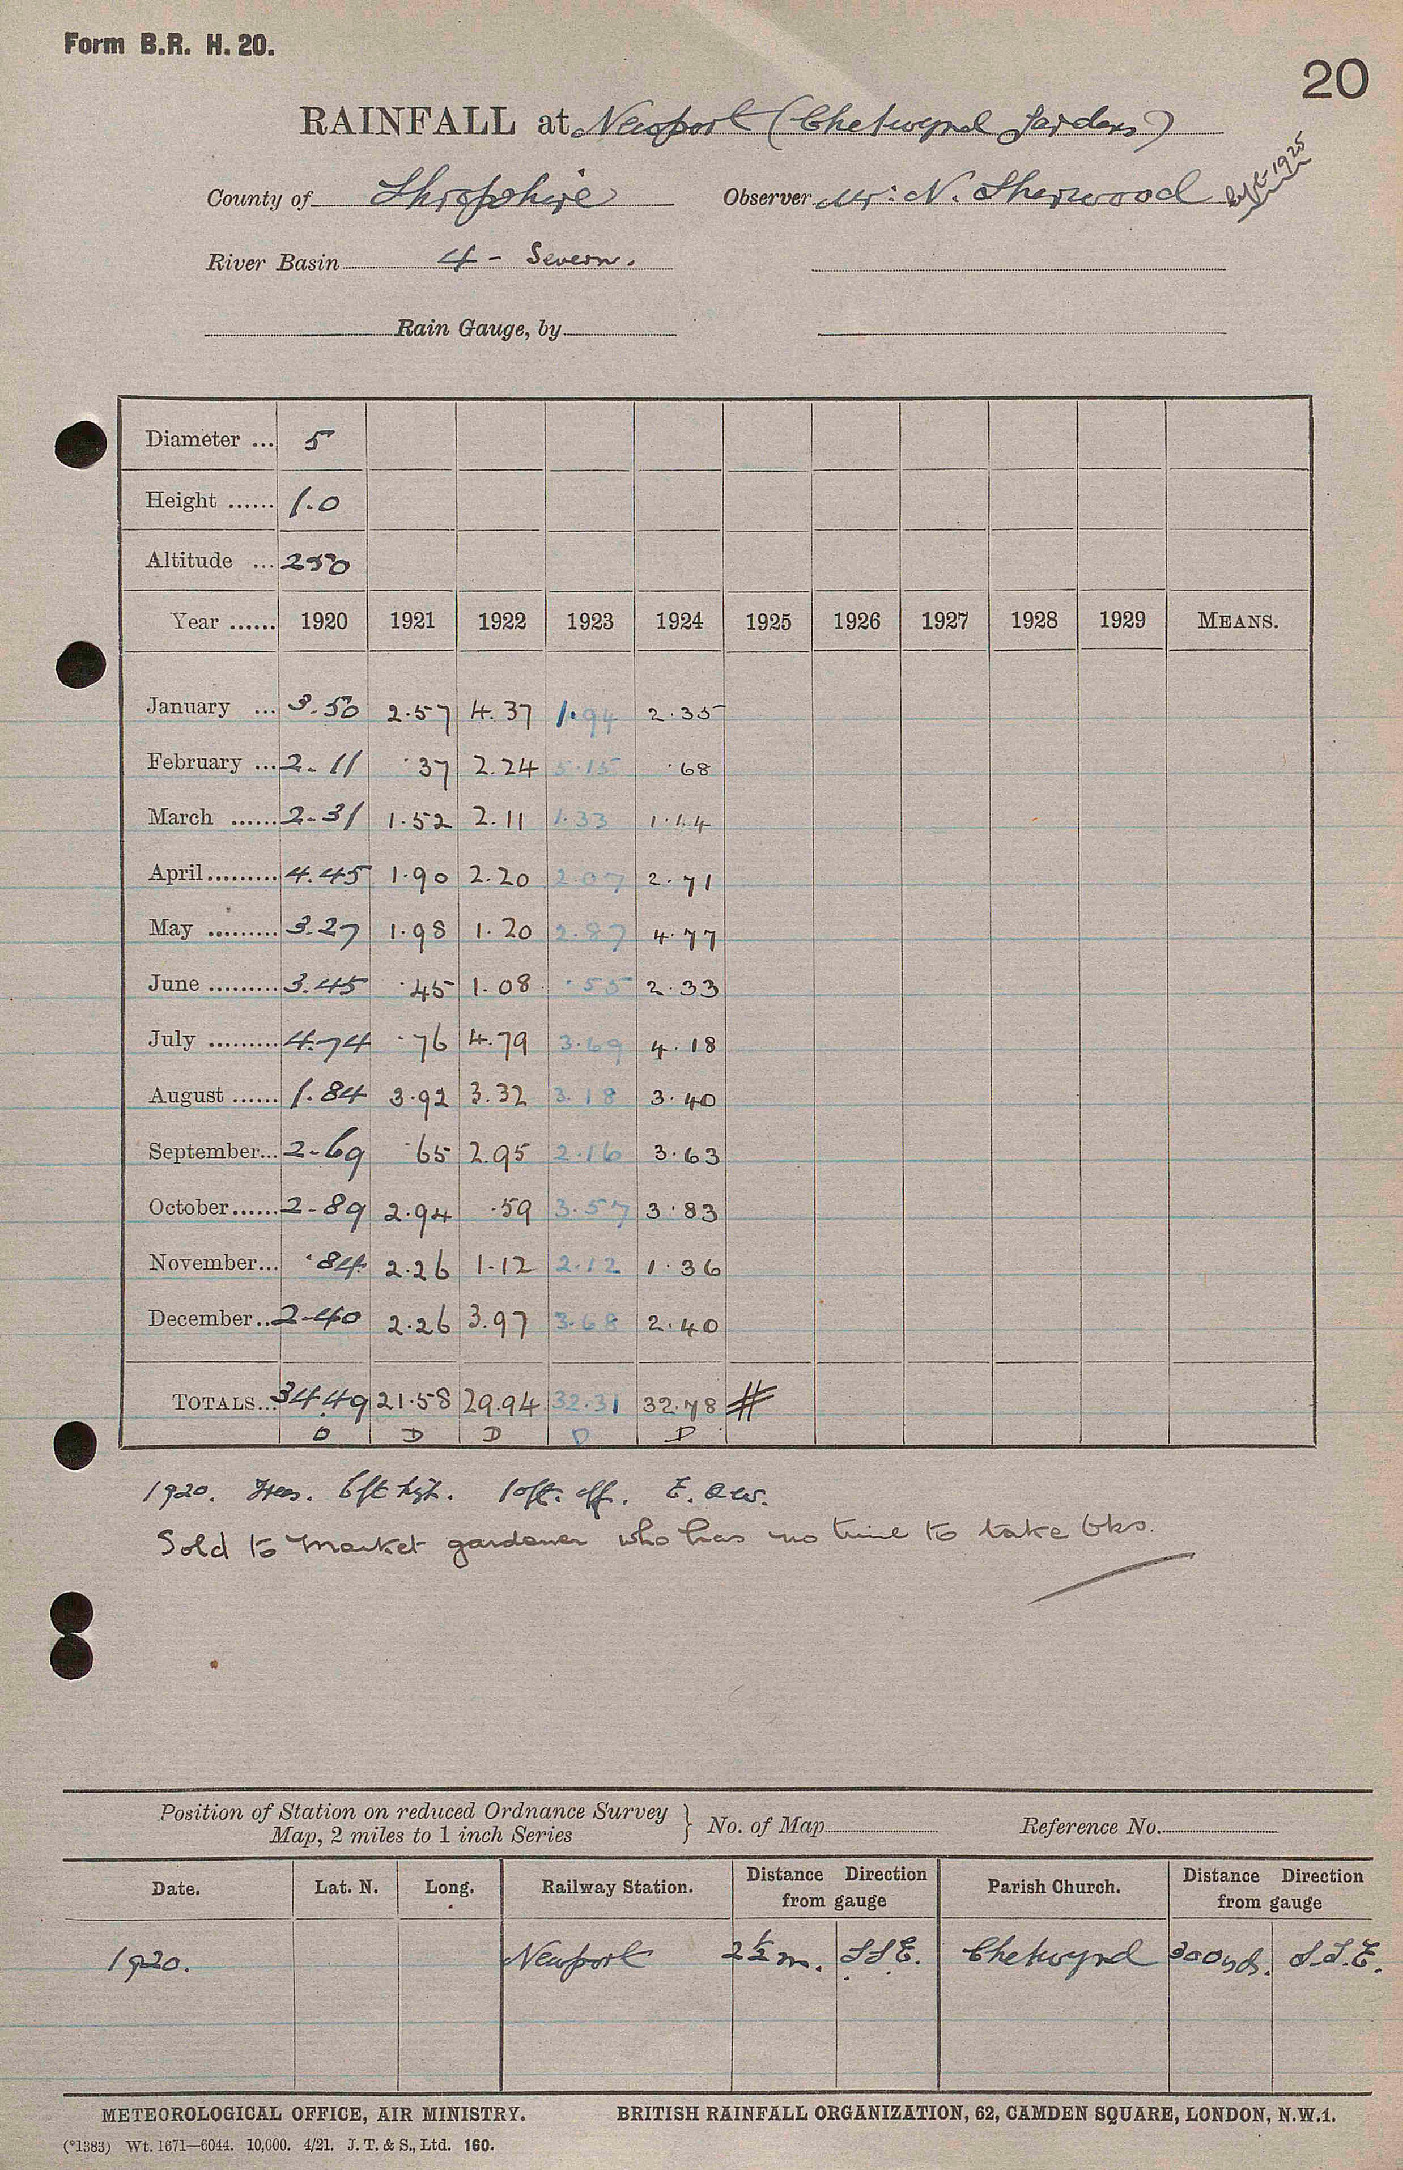 Form B.R. H. 20.
20
RAINFALL at Newport (Chetwynd Gardens)
County of Shropshire Observer Mr. N. Sherwood left 1925
River Basin 4 - Severn.
Rain Gauge, by
Diameter ... 5
Height ...... 1.0
Altitude ... 250
Year ...... 1920 1921 1922 1923 1924 1925 1926 1927 1928 1929 MEANS.
January ... 3.50 2.57 4.37 1.94 2.35
February ... 2.11 .37 2.24 5.15 .68
March ...... 2.31 1.52 2.11 1.33 1.14
April......... 4.45 1.90 2.20 2.07 2.71
May ......... 3.27 1.98 1.20 2.87 4.77
June ......... 3.45 .45 1.08 .55 2.33
July ......... 4.74 .76 4.79 3.69 4.18
August ...... 1.84 3.92 3.32 3.18 3.40
September... 2.69 .65 2.95 2.16 3.63
October...... 2.89 2.94 .59 3.57 3.83
November... .84 2.26 1.12 2.12 1.36
December.. 2.40 2.26 3.97 3.68 2.40
TOTALS... 34.49 21.58 29.94 32.31 32.78 #
D D D D D
1920. Trees. 6ft high. 10ft. off. E. & W.
Sold to Market gardener who has no time to take obs.
Position of Station on reduced Ordnance Survey
Map, 2 miles to 1 inch Series } No. of Map Reference No.
Date. Lat. N. Long. Railway Station. Distance Direction from gauge Parish Church. Distance Direction from gauge
1920. Newport 2½ m. S.S.E. Chetwynd 300 yds. S.S.E.
METEOROLOGICAL OFFICE, AIR MINISTRY. BRITISH RAINFALL ORGANIZATION, 62, CAMDEN SQUARE, LONDON, N.W.1.
(*1383) Wt. 1671—6044. 10,000. 4/21. J. T. & S., Ltd. 160.